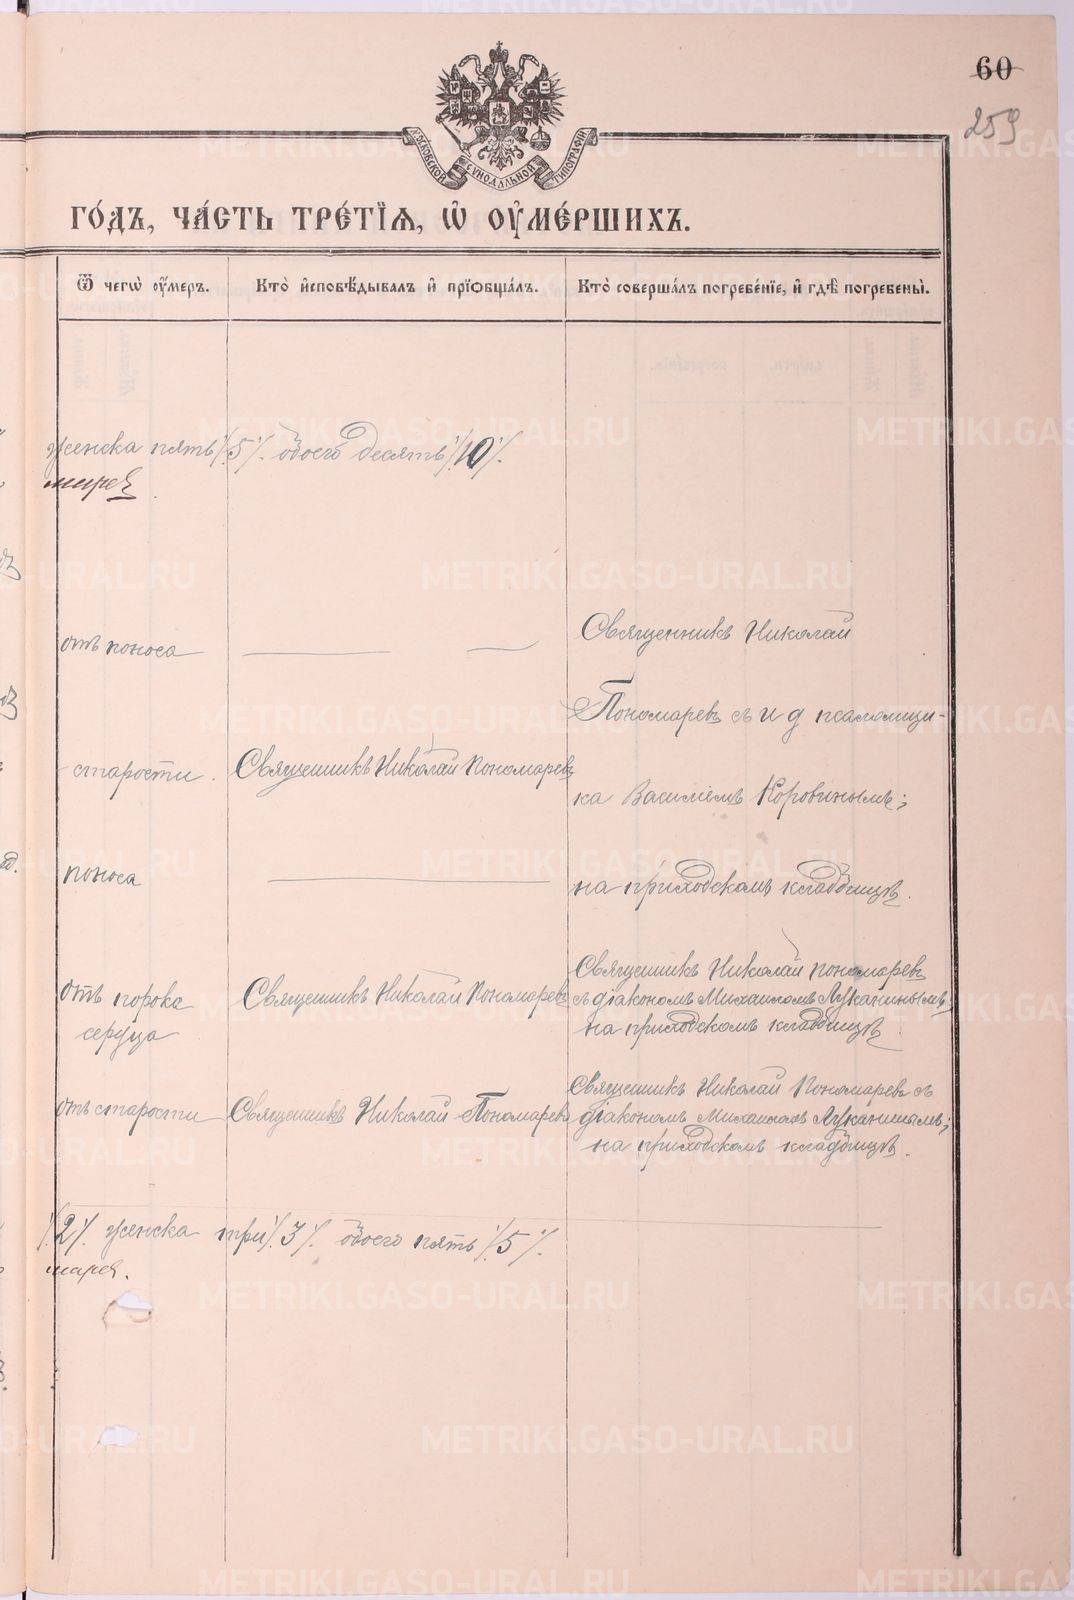 60
259
МОСКОВСКОЙ СѴНОДАЛЬНОЙ ТИПОГРАФІИ
ГО́ДЪ, ЧА́СТЬ ТРЕ́ТІѦ, Ѽ ОУ҆МЕ́РШИХЪ.
Ѿ чегѡ̀ оу҆́меръ.
Кто̀ и҆сповѣ́дывалъ и҆ прїѡбща́лъ.
Кто̀ соверша́лъ погребе́нїе, и҆ гдѣ̀ погребены̀.
женска пять /.5/. обоего десять /.10/.
отъ поноса
Священникъ Николай
Пономаревъ съ и д псаломщи-
старости.
Священникъ Николай Пономаревъ
ка Василіемъ Коровинымъ;
поноса
на приходскомъ кладбищѣ.
отъ порока
сердца
Священникъ Николай Пономаревъ
Священникъ Николай Пономаревъ
съ діакономъ Михаиломъ Луканинымъ;
на приходскомъ кладбищѣ.
отъ старости
Священникъ Николай Пономаревъ
Священникъ Николай Пономаревъ съ
діакономъ Михаиломъ Луканинымъ;
на приходскомъ кладбищѣ.
/.2/. женска три /.3/. обоего пять /.5/.
METRIKI.GASO-URAL.RU